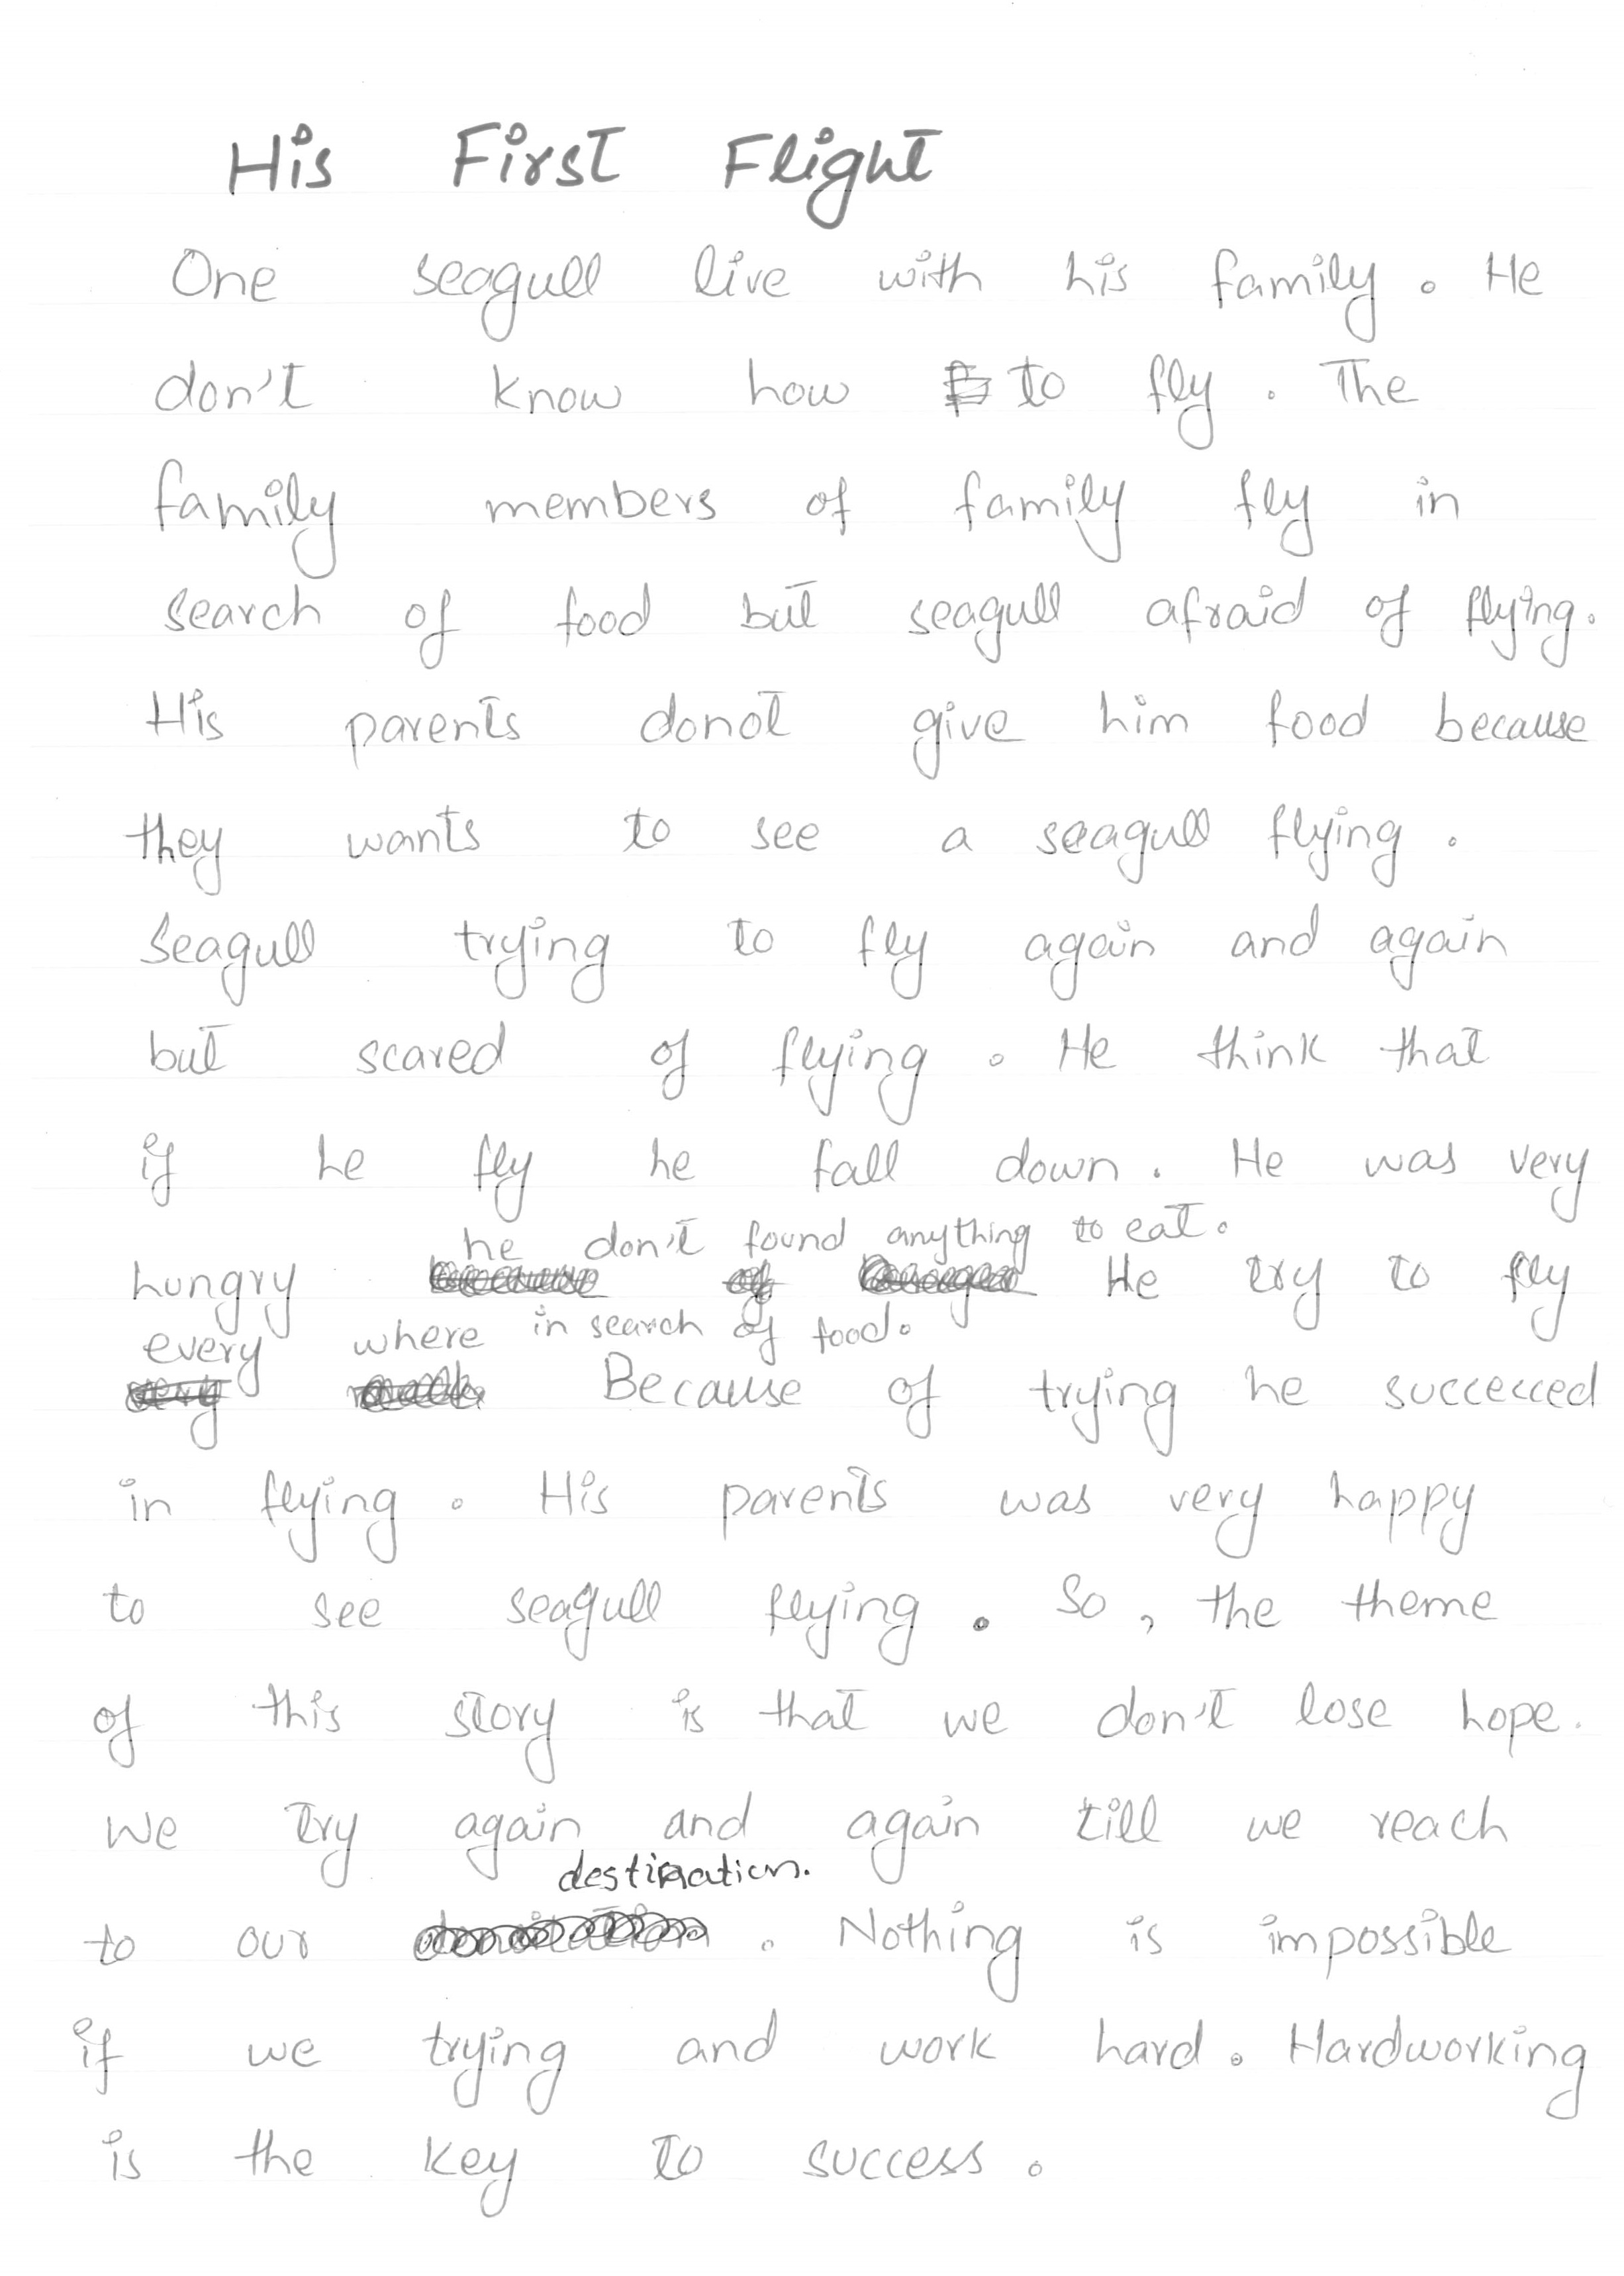 His First Flight
One seagull live with his family. He
don't know how to fly. The
family members of family fly in
search of food but seagull afraid of flying.
His parents donot give him food because
they wants to see a seagull flying.
Seagull trying to fly again and again
but scared of flying. He think that
if he fly he fall down. He was very
he don't found anything to eat.
hungry He try to fly
every where in search of food.
Because of trying he succecced
in flying. His parents was very happy
to see seagull flying. So, the theme
of this story is that we don't lose hope.
We try again and again till we reach
destination.
to our . Nothing is impossible
if we trying and work hard. Hardworking
is the key to success.